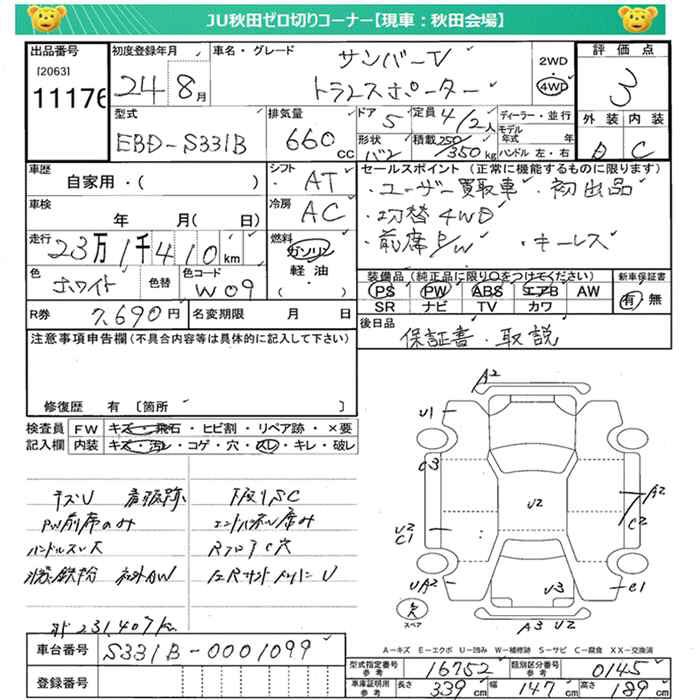 JU秋田ゼロ切りコーナー【現車：秋田会場】
出品番号
[2063]
11176
初度登録年月
24 8月
車名・グレード
サンバーTV
トランスポーター
2WD
4WD
評価点
3
外装 内装
C
型式
EBD-S331B
排気量
660cc
ドア
5
定員
4/2人
形状
バン
積載
250/350kg
ディーラー・並行
モデル年式 年
ハンドル 左・右
車歴
自家用・( )
シフト
AT
車検
年 月( 日)
冷房
AC
走行
23万1千410km
燃料
ガソリン
軽油
( )
色
ホワイト
色替
色コード
W09
R券
7,690円
名変期限 月 日
セールスポイント(正常に機能するものに限ります)
・ユーザー買取車 ・初出品
・切替4WD
・前席P/W ・キーレス
装備品(純正品に限り○をつけてください)
PS PW ABS エアB AW
SR ナビ TV カワ
新車保証書
有・無
後日品
保証書・取説
注意事項申告欄(不具合内容等は具体的に記入して下さい)
修復歴 有 [箇所 ]
検査員記入欄
FW キズ・飛石・ヒビ割・リペア跡・×要
内装 キズ・汚レ・コゲ・穴・スレ・キレ・破レ
キズU
下廻りSC
PW前席のみ
ハンドルスレ大
鉄粉 社外AW
231,407km
A2
U1
C3
U2
C1
UA2
U2
A2
C2
C1
U3
A3 U2
スペア
A－キズ E－エクボ U－凹み W－補修跡 S－サビ C－腐食 XX－交換済
車台番号
S331B-0001099
登録番号
型式指定番号 参考
16752
類別区分番号 参考
0145
車庫証明用 参考
長さ 339cm
幅 147cm
高さ 189cm